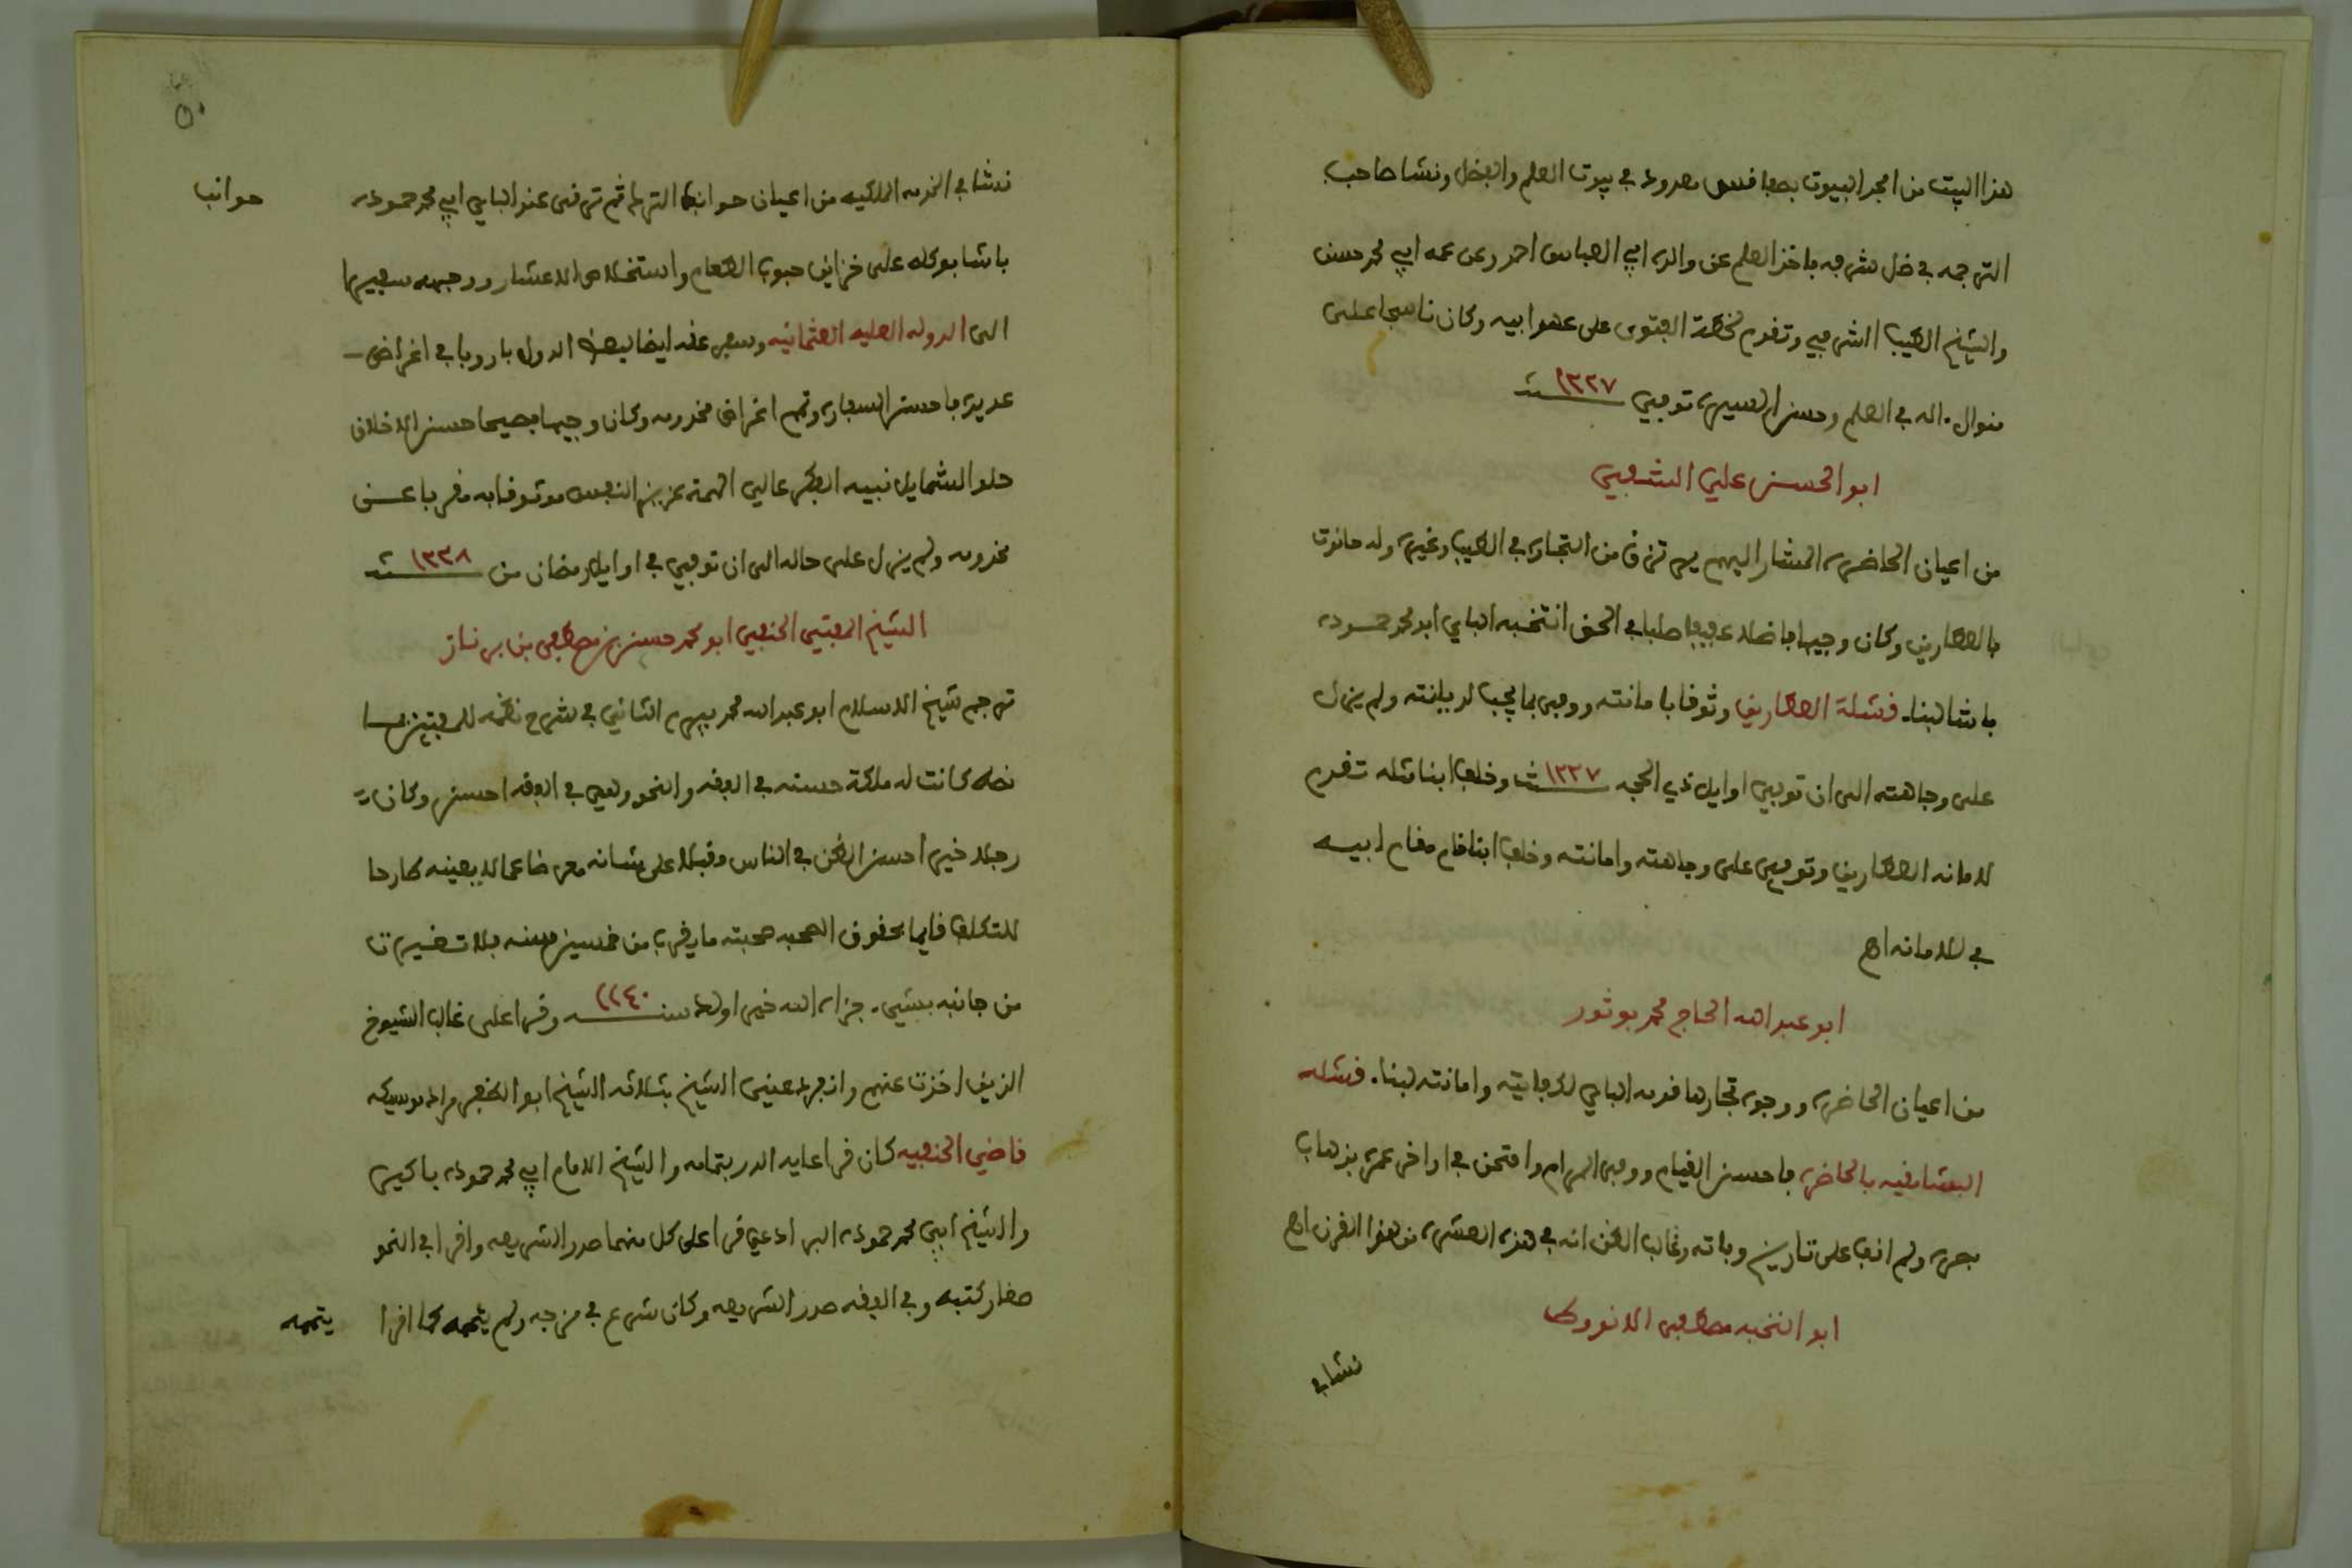 هذا البيت من امجد البيوت بصفاقس معدود في بيوت العلم والفضل ونشا صاحب
الترجمه في ظل شرفه فاخذ العلم عن والده ابي العباس احمد وعن عمه ابي محمد حسن
والشيخ الطيب الشرفي وتقدم لخطة الفتوى على عهد ابيه وكان ناسجا على
منوال اله في العلم وحسن السيره توفي ١٢٢٧ سنة
ابو الحسن علي الشعبي
من اعيان الحاضره المشار اليهم يسترزق من التجاره في الطيب وغيره وله حانوت
بالعطارين وكان وجيها فاضلا عفيفا صلبا في الحق انتخبه الباي ابو محمد حموده
باشا لبناء قشلة العطارين وثوقا بامانته ووفى بما يجب لديانته ولم يزل
على وجاهته الى ان توفي اوايل ذي الحجه ١٢٢٧ سنة وخلف ابنا مثله تقدم
لامانه العطارين وتوفي على وجاهته وامانته وخلف ابنا قام مقام ابيه
في الامانه اهـ
ابو عبد الله الحاج محمد بوثور
من اعيان الحاضره ووجوه تجارها قدمه الباي لكفايته وامانته لبناء قشله
البشامقيه بالحاضره فاحسن القيام ووفى المرام وامتحن في اواخر عمره بذهاب
بصره ولم اقف على تاريخ وفاته وغالب الظن انه في هذه العشره من هذا القرن اهـ
ابو النخبه مصطفى الانورط
نشا في
٥٠
نشا في الخدمه الملكيه من اعيان حوانب الترك ثم ترقى عند الباي ابي محمد حموده
حوانب
باشا بوكله على خزاين حبوب الطعام واستخلاص الاعشار ووجهه سفيرا
الى الدوله العليه العثمانيه وسفر عنه ايضا لبعض الدول باروبا في اغراض
عديده فاحسن السفاره وتمم اغراض مخدومه وكان وجيها فصيحا حسن الاخلاق
حلو الشمايل نبيه الفكر عالي الهمة عزيز النفس موثوقا به مقربا عند
مخدومه ولم يزل على حاله الى ان توفي في اوايل رمضان من ١٢٢٨ سنة
الشيخ المفتي الحنفي ابو محمد حسن بن مصطفى بن برناز
ترجم شيخ الاسلام ابو عبد الله محمد بيرم الثاني في شرح نظمه للمفتين بما
نصه كانت له ملكة حسنه في الفقه والنحو وهي في الفقه احسن وكان
رجلا خيرا حسن الظن في الناس مقبلا على شانه معرضا عما لا يعنيه طارحا
للتكلف قايما بحقوق الصحبه صحبته ما يقرب من خمسين سنه بلا تغيير
من جانبه بشيء جزاه الله خيرا ولد سنه ١١٤٠ وقرا على غالب الشيوخ
الذين اخذت عنهم وانفرد عني الشيخ بثلاثه الشيخ ابو الظفر مراد
قاضي الحنفيه كان قرا عليه الدر بتمامه والشيخ الامام ابي محمد حموده باكير
والشيخ ابي محمد حموده البرادعي قرا على كل منهما صدر الشريعه واقرا في النحو
صغار كتبه وفي الفقه صدر الشريعه وكان شرع في مزجه ولم يتمه كما اقرا
يتممه